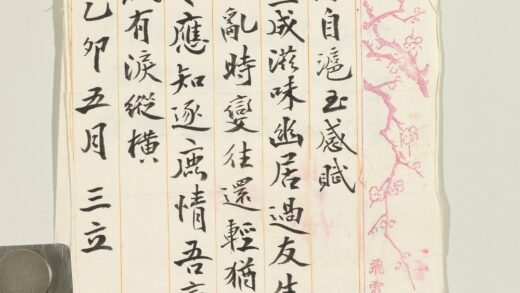 自滬至感賦
成滋味幽居過友生
亂時變往還輕猶
應知逐鹿情吾
有淚縱橫
乙卯五月 三立
飛雲